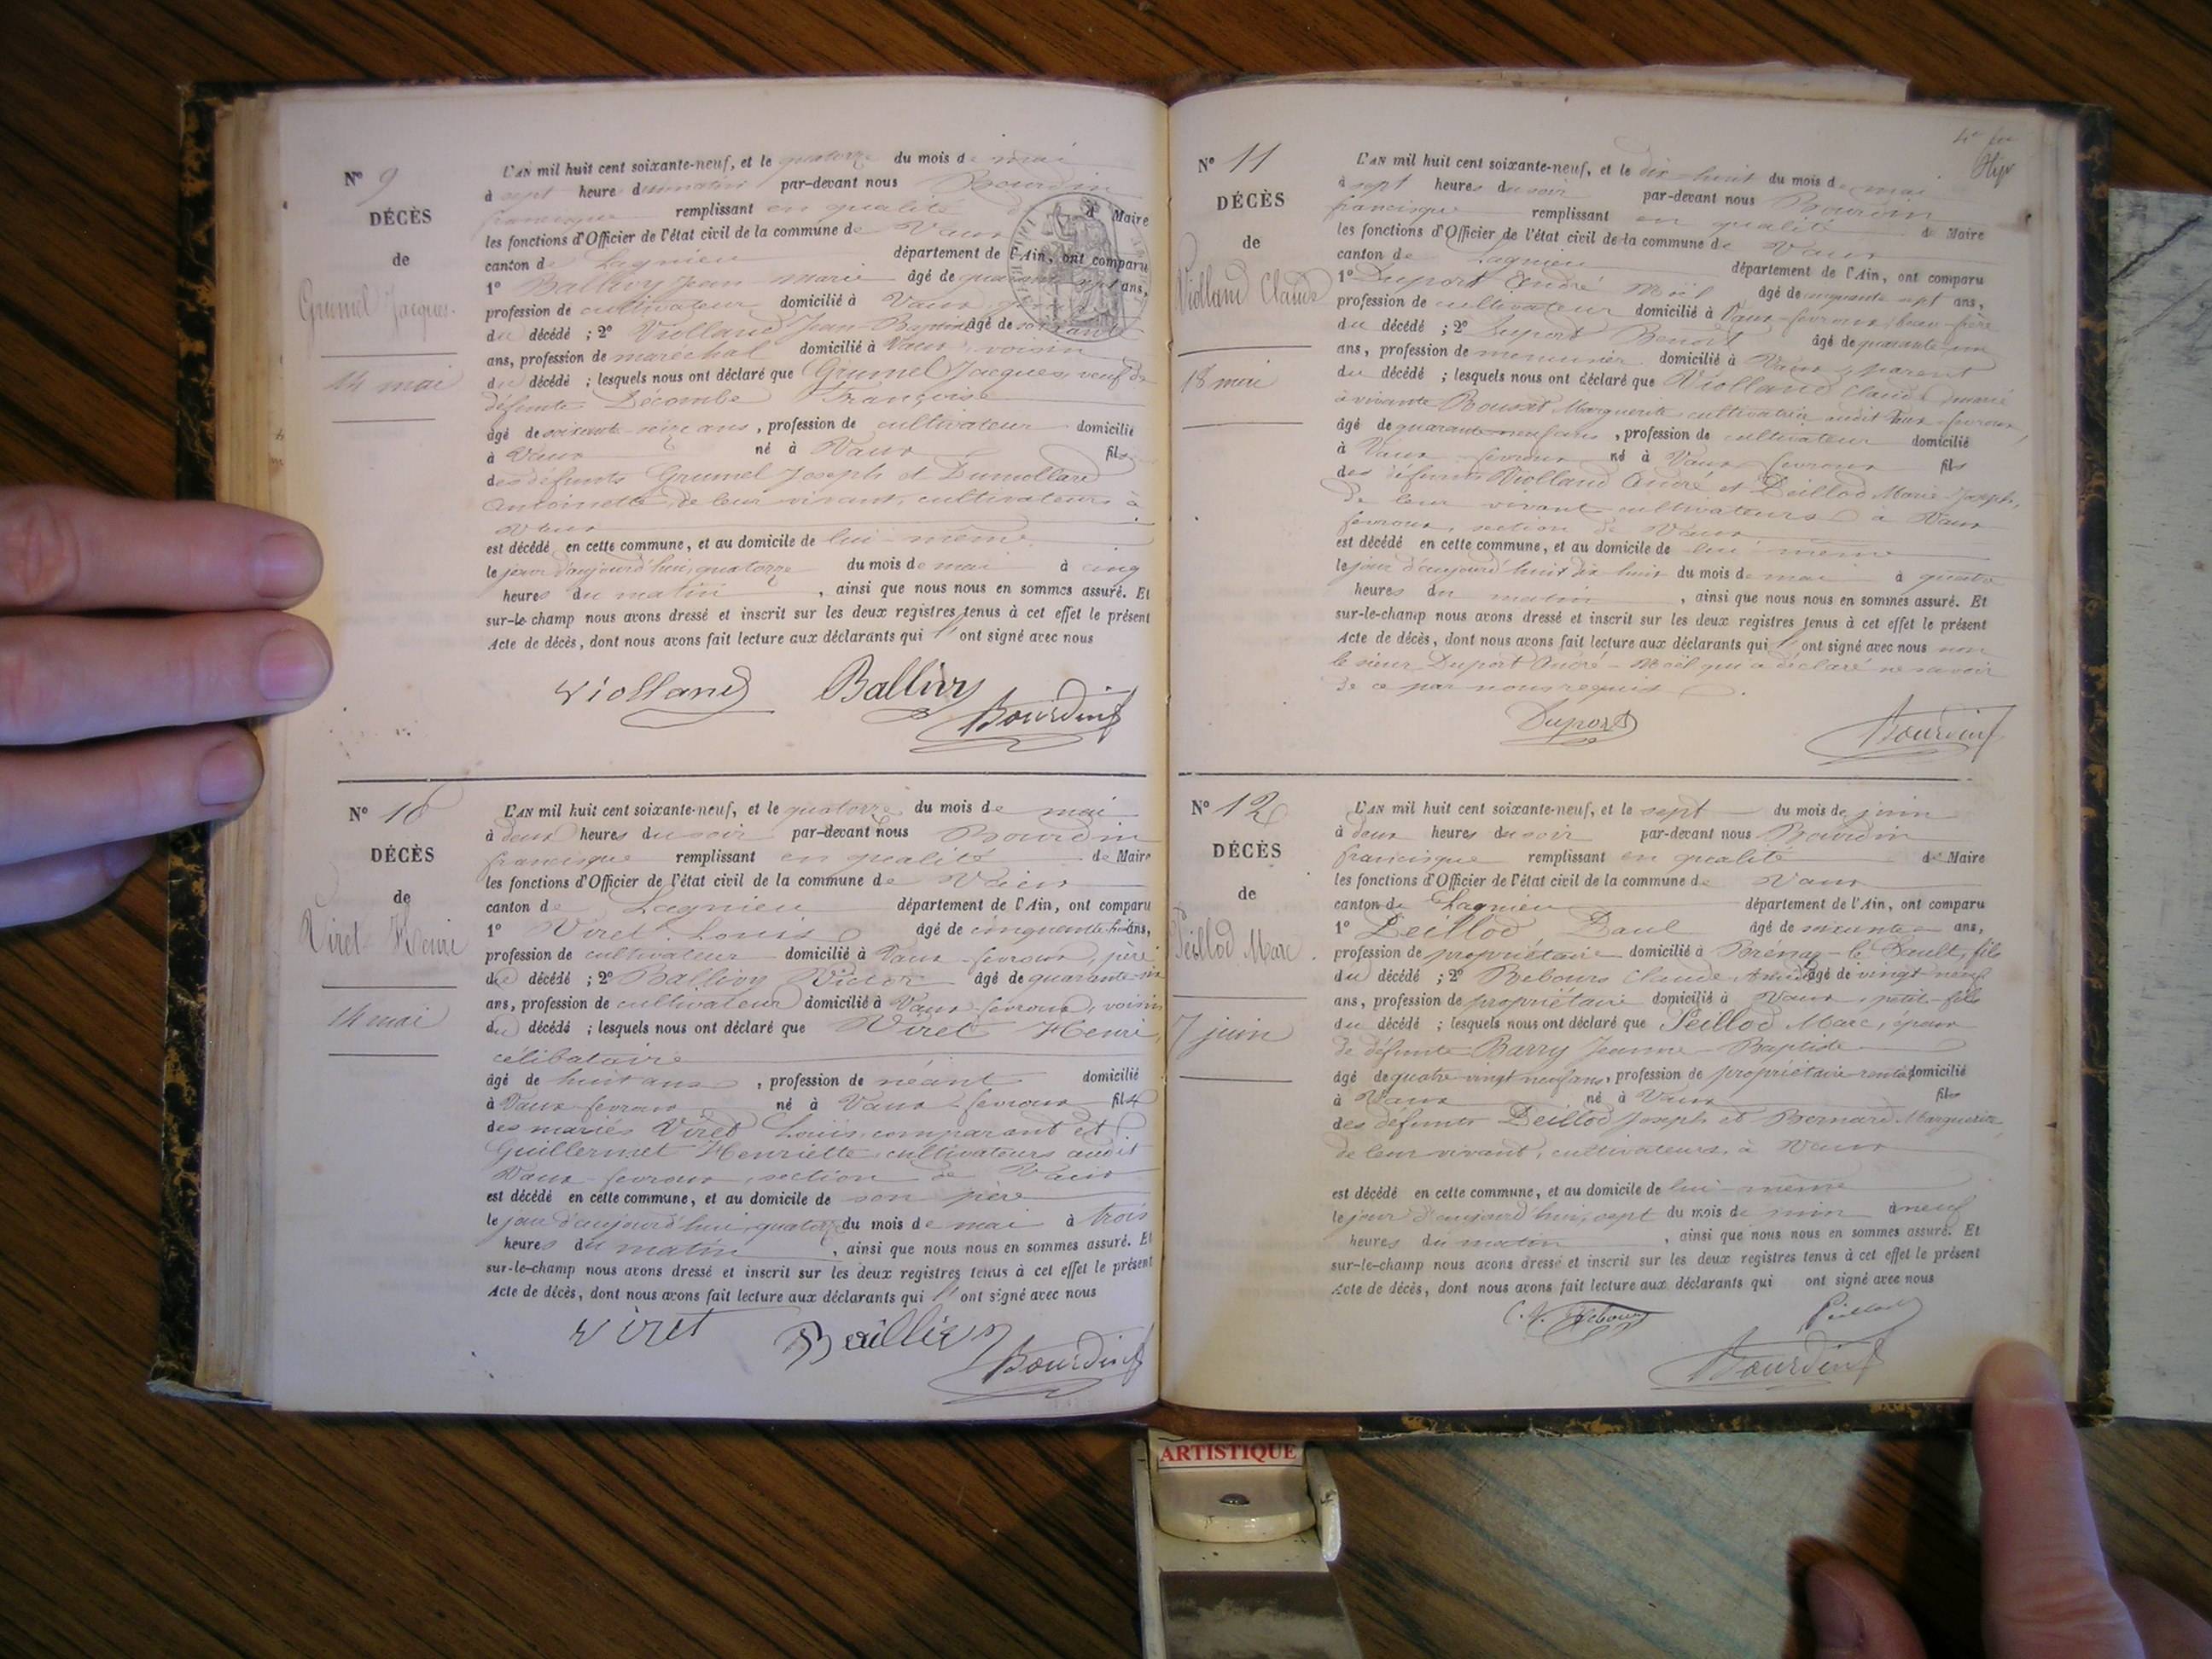 N° 9
DÉCÈS
de
Grumel Jacques.
14 mai
L'AN mil huit cent soixante-neuf, et le quatorze du mois de mai
à sept heure du matin par-devant nous Bourdin
francisque remplissant en qualité de Maire
les fonctions d'Officier de l'état civil de la commune de Vaux
canton de Lagnieu département de l'Ain, ont comparu
1° Ballivy Jean Marie âgé de quarante sept ans,
profession de cultivateur domicilié à Vaux
du décédé ; 2° Violland Jean-Baptiste âgé de soixante
ans, profession de maréchal domicilié à Vaux, voisin
du décédé ; lesquels nous ont déclaré que Grumel Jacques, veuf de
défunte Décombe Françoise
âgé de soixante-seize ans, profession de cultivateur domicilié
à Vaux né à Vaux fils
des défunts Grumel Joseph et Dumollard
Antoinette, de leur vivant, cultivateurs à
Vaux
est décédé en cette commune, et au domicile de lui-même
le jour d'aujourd'hui, quatorze du mois de mai à cinq
heures du matin, ainsi que nous nous en sommes assuré. Et
sur-le-champ nous avons dressé et inscrit sur les deux registres tenus à cet effet le présent
Acte de décès, dont nous avons fait lecture aux déclarants qui ont signé avec nous
Violland Ballivy
Bourdin
N° 10
DÉCÈS
de
Viret Henri
14 mai
L'AN mil huit cent soixante-neuf, et le quatorze du mois de mai
à deux heures du soir par-devant nous Bourdin
francisque remplissant en qualité de Maire
les fonctions d'Officier de l'état civil de la commune de Vaux
canton de Lagnieu département de l'Ain, ont comparu
1° Viret Louis âgé de cinquante huit ans,
profession de cultivateur domicilié à Vaux-fevroux, père
du décédé ; 2° Ballivy Victor âgé de quarante-six
ans, profession de cultivateur domicilié à Vaux-fevroux, voisin
du décédé ; lesquels nous ont déclaré que Viret Henri,
célibataire
âgé de huit ans, profession de néant domicilié
à Vaux-fevroux né à Vaux-fevroux fils
des mariés Viret Louis, comparant et
Guillermet Henriette, cultivateurs audit
Vaux-fevroux, section de Vaux
est décédé en cette commune, et au domicile de son père
le jour d'aujourd'hui, quatorze du mois de mai à trois
heures du matin, ainsi que nous nous en sommes assuré. Et
sur-le-champ nous avons dressé et inscrit sur les deux registres tenus à cet effet le présent
Acte de décès, dont nous avons fait lecture aux déclarants qui ont signé avec nous
Viret Baillivy
Bourdin
N° 11
DÉCÈS
de
Violland Claude
18 mai
L'AN mil huit cent soixante-neuf, et le dix huit du mois de mai
à sept heures du soir par-devant nous Bourdin
francisque remplissant en qualité de Maire
les fonctions d'Officier de l'état civil de la commune de Vaux
canton de Lagnieu département de l'Ain, ont comparu
1° Duport André Noël âgé de cinquante sept ans,
profession de cultivateur domicilié à Vaux-fevroux, beau-frère
du décédé ; 2° Duport Benoit âgé de quarante-un
ans, profession de menuisier domicilié à Vaux, parent
du décédé ; lesquels nous ont déclaré que Violland Claude, marié
à vivante Bousset Marguerite cultivatrice audit Vaux-fevroux,
âgé de quarante-neuf ans, profession de cultivateur domicilié
à Vaux-fevroux né à Vaux-fevroux fils
des défunts Violland André et Peillod Marie-Joseph,
de leur vivant cultivateurs à Vaux
fevroux, section de Vaux
est décédé en cette commune, et au domicile de lui-même
le jour d'aujourd'huit dix huit du mois de mai à quatre
heures du matin, ainsi que nous nous en sommes assuré. Et
sur-le-champ nous avons dressé et inscrit sur les deux registres tenus à cet effet le présent
Acte de décès, dont nous avons fait lecture aux déclarants qui ont signé avec nous non
le sieur Duport André-Noël qui a déclaré ne savoir
de ce par nous requis
Duport Bourdin
N° 12
DÉCÈS
de
Peillod Marc.
7 juin
L'AN mil huit cent soixante-neuf, et le sept du mois de juin
à deux heures du soir par-devant nous Bourdin
francisque remplissant en qualité de Maire
les fonctions d'Officier de l'état civil de la commune de Vaux
canton de Lagnieu département de l'Ain, ont comparu
1° Peillod Paul âgé de soixante ans,
profession de propriétaire domicilié à Brénaz-le-Sault, fils
du décédé ; 2° Rebours Claude Amédé âgé de vingt-neuf
ans, profession de propriétaire domicilié à Vaux, petit-fils
du décédé ; lesquels nous ont déclaré que Peillod Marc, époux
de défunte Barry Jeanne-Baptiste
âgé de quatre-vingt-neuf ans, profession de propriétaire-rentier domicilié
à Vaux né à Vaux fils
des défunts Peillod Joseph et Bernard Marguerite,
de leur vivant, cultivateurs, à Vaux
est décédé en cette commune, et au domicile de lui-même
le jour d'aujourd'hui, sept du mois de juin à neuf
heures du matin, ainsi que nous nous en sommes assuré. Et
sur-le-champ nous avons dressé et inscrit sur les deux registres tenus à cet effet le présent
Acte de décès, dont nous avons fait lecture aux déclarants qui ont signé avec nous
C. A. Rebours Peillod
Bourdin
ARTISTIQUE